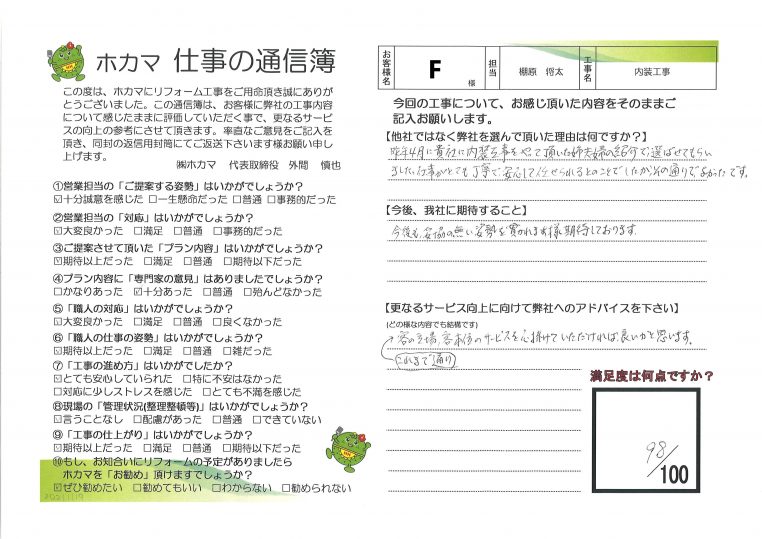 ホカマ 仕事の通信簿
この度は、ホカマにリフォーム工事をご用命頂き誠にありが
とうございました。この通信簿は、お客様に弊社の工事内容
について感じたままに評価していただく事で、更なるサービ
スの向上の参考にさせて頂きます。率直なご意見をご記入を
頂き、同封の返信用封筒にてご返送下さいます様お願い申し
上げます。
㈱ホカマ 代表取締役 外間 慎也
①営業担当の「ご提案する姿勢」はいかがでしょうか?
☑十分誠意を感じた □一生懸命だった □普通 □事務的だった
②営業担当の「対応」はいかがでしょうか?
☑大変良かった □満足 □普通 □事務的だった
③ご提案させて頂いた「プラン内容」はいかがでしょうか?
☑期待以上だった □満足 □普通 □期待以下だった
④プラン内容に「専門家の意見」はありましたでしょうか?
□かなりあった ☑十分あった □普通 □殆んどなかった
⑤「職人の対応」はいかがでしょうか?
☑大変良かった □満足 □普通 □良くなかった
⑥「職人の仕事の姿勢」はいかがでしょうか?
☑期待以上だった □満足 □普通 □雑だった
⑦「工事の進め方」はいかがでしたか?
☑とても安心していられた □特に不安はなかった
□対応に少しストレスを感じた □とても不満を感じた
⑧現場の「管理状況(整理整頓等)」はいかがでしょうか?
☑言うことなし □配慮があった □普通 □できていない
⑨「工事の仕上がり」はいかがでしょうか?
☑期待以上だった □満足 □普通 □期待以下だった
⑩もし、お知合いにリフォームの予定がありましたら
ホカマを「お勧め」頂けますでしょうか?
☑ぜひ勧めたい □勧めてもいい □わからない □勧められない
お客様名 F 様 担当 棚原 将太 工事名 内装工事
今回の工事について、お感じ頂いた内容をそのままご
記入お願いします。
【他社ではなく弊社を選んで頂いた理由は何ですか?】
昨年4月に貴社に内装工事をやって頂いた姉夫婦の紹介で選ばせてもらい
ました。仕事がとても丁寧で安心して任せられるとのことでしたが、その通りでよかったです。
【今後、我社に期待すること】
今後も妥協の無い姿勢を貫かれます様期待しております。
【更なるサービス向上に向けて弊社へのアドバイスを下さい】
(どの様な内容でも結構です)
客の立場、客本位のサービスを心掛けていただければ良いかと思います。
これまで通り
満足度は何点ですか?
98/100